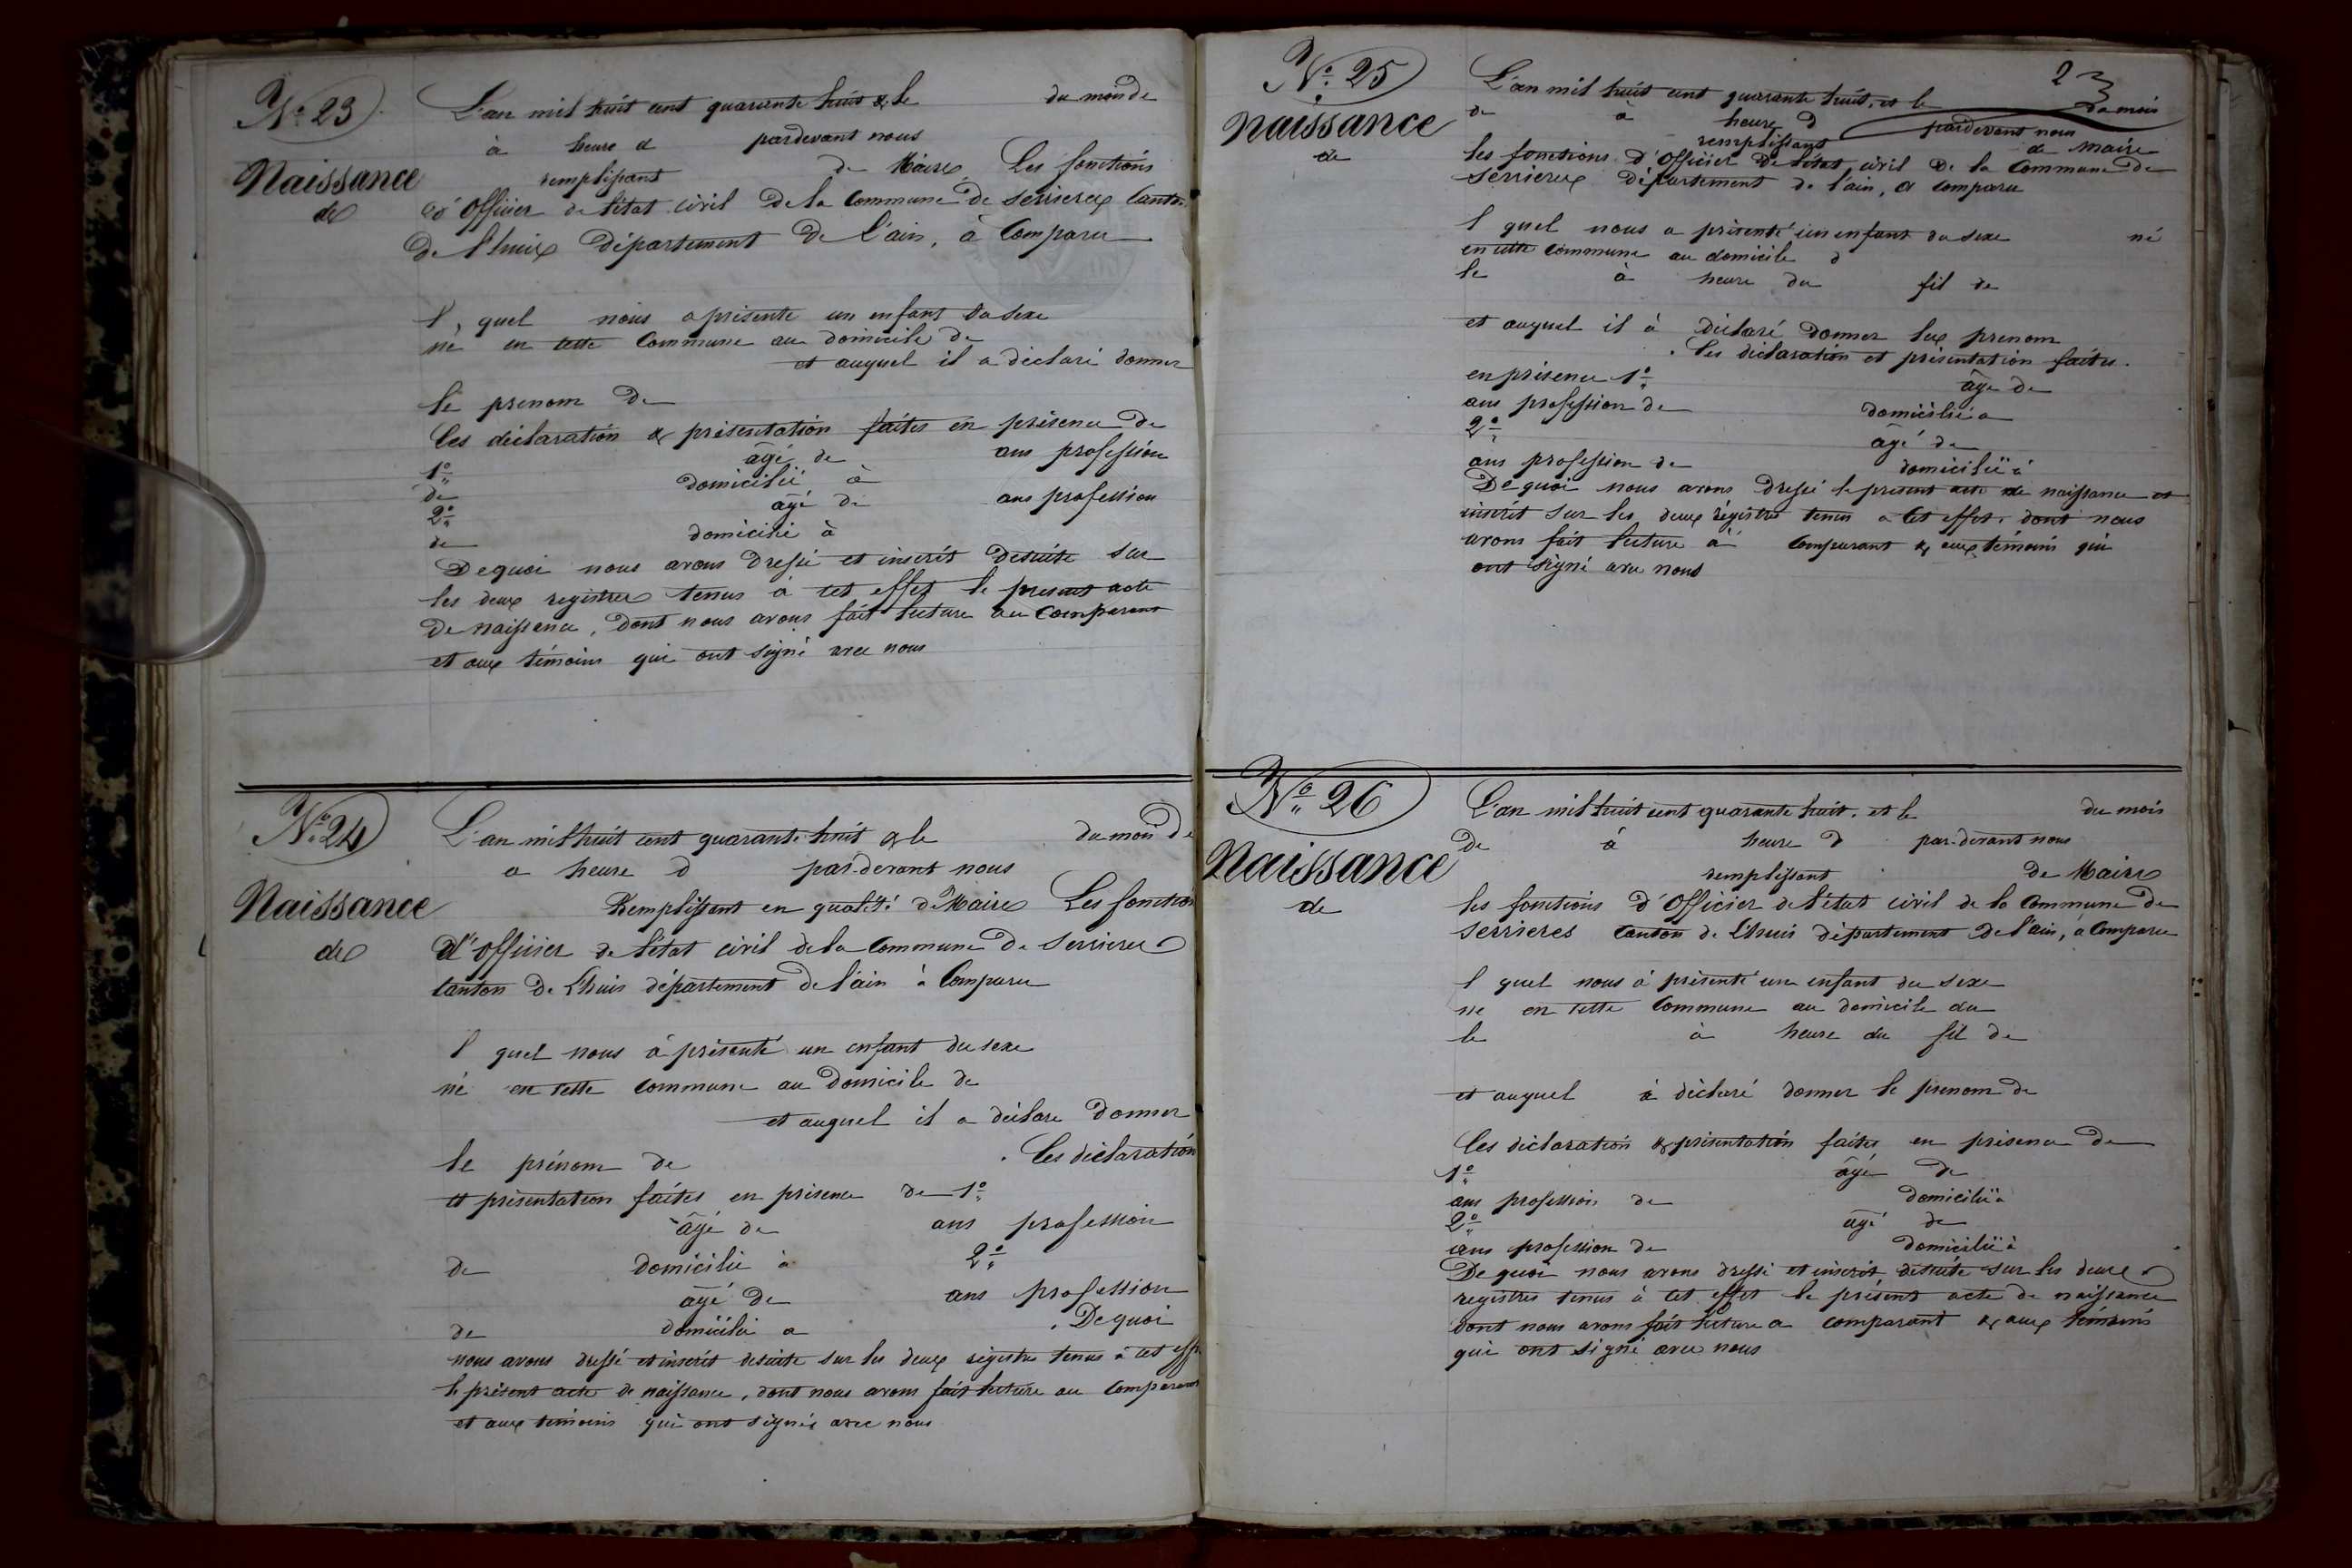 N° 23
Naissance
de
L'an mil huit cent quarante huit & le du mois de
à heure d pardevant nous
remplissant de Maire Les fonctions
d'Officier de l'état civil De la Commune de serrieres Canton
De l'huis Département De l'ain, à Comparu
l, quel nous a présenté un enfant du sexe
né en cette Commune au domicile de
et auquel il a déclaré donner
le prenom De
Ces déclaration & présentation faites en présence De
1° âgé de ans profession
de domicilié à
2° âgé de ans profession
de domicilié à
De quoi nous avons Dressé et inscrit Desuite sur
les deux registres tenus à cet effet le présent acte
De naissance, Dont nous avons fait lecture au Comparant
et aux témoins qui ont signé avec nous
N° 24
Naissance
de
L'an mil huit cent quarante huit & le du mois De
a heure D par-devant nous
Remplissant en qualité De Maire Les fonctions
d'Officier de l'état civil de la Commune De Serrieres
Canton De L'huis département de l'ain à Comparu
l quel nous à présenté un enfant du sexe
né en cette Commune au Domicile de
et auquel il a déclaré Donner
le prénom de . Ces déclaration
et présentation faites en présence De 1°
âgé de ans profession
de domicilié à 2°
âgé De ans profession
de domicilié a . De quoi
nous avons dressé et inscrit desuite sur les deux régistres tenus à cet eff
le présent acte de naissance, dont nous avons fait lecture au Comparant
et aux témoins qui ont signés avec nous
23
N° 25
Naissance
de
L'an mil huit cent quarante huit, et le du mois
de à heure D pardevant nous
remplissant de Maire
les fonctions d'Officier De l'état civil De la Commune De
Serrieres Département de l'ain, a Comparu
l quel nous a présenté un enfant du sexe né
en cette Commune au domicile d
le à heure du fil de
et auquel il à déclaré donner les prenom
. Ces déclaration et présentation faites
en présence 1° âgé De
ans profession de domicilié a
2° âgé de
ans profession de domicilié à
De quoi nous avons Dressé le présent acte de naissance et
inscrit sur les deux régistres tenus a cet effet. dont nous
avons fait lecture à Comparant & aux témoins qui
ont signé avec nous
N° 26
Naissance
de
L'an mil huit cent quarante huit. et le du mois
De à heure D par-devant nous
remplissant de Maire
les fonctions d'Officier de l'état civil de la Commune De
serrieres Canton de L'huis département De l'ain, à Comparu
l quel nous à présenté un enfant du sexe
né en cette Commune au domicile du
le à heure du fil de
et auquel à déclaré donner le prenom de
Ces déclaration & présentation faites en présence De
1° âgé De
ans profession de domicilié a
2° âgé de
ans profession de domicilié à
De quoi nous avons dressé et inscrit desuite sur les deux
registres tenus à cet effet le présent acte de naissance
dont nous avons fait lecture a Comparant & aux témoins
qui ont signé avec nous